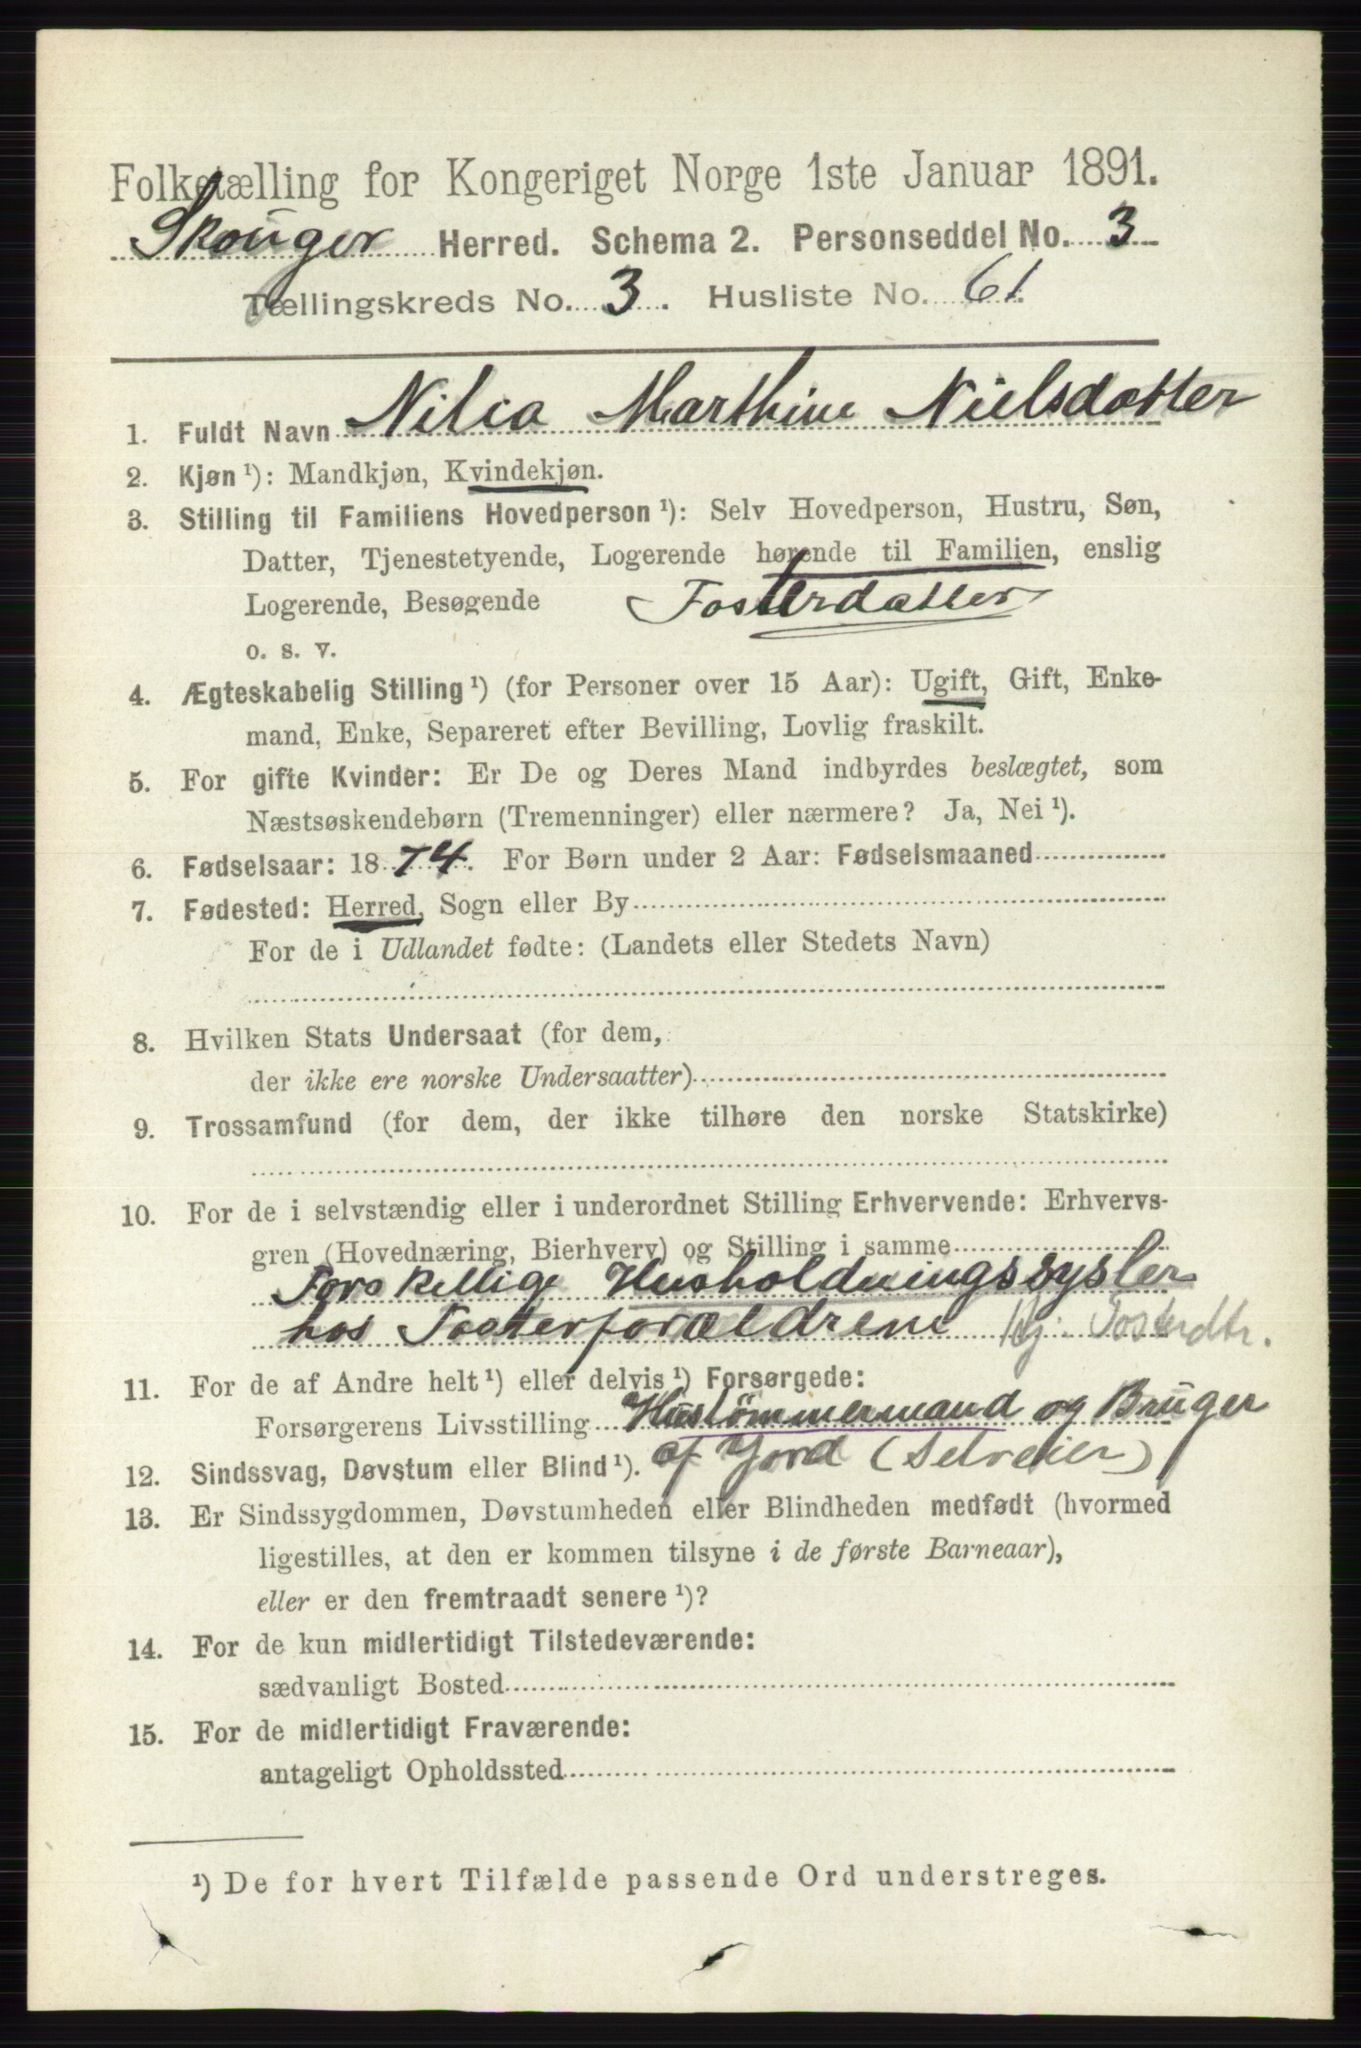 Folketælling for Kongeriget Norge 1ste Januar 1891.
Skouger Herred. Schema 2. Personseddel No. 3
Tællingskreds No. 3. Husliste No. 61.
1. Fuldt Navn Nilia Marthine Nielsdatter
2. Kjøn ¹): Mandkjøn, Kvindekjøn.
3. Stilling til Familiens Hovedperson ¹): Selv Hovedperson, Hustru, Søn,
Datter, Tjenestetyende, Logerende hørende til Familien, enslig
Logerende, Besøgende Fosterdatter
o. s. v.
4. Ægteskabelig Stilling ¹) (for Personer over 15 Aar): Ugift, Gift, Enke-
mand, Enke, Separeret efter Bevilling, Lovlig fraskilt.
5. For gifte Kvinder: Er De og Deres Mand indbyrdes beslægtet, som
Næstsøskendebørn (Tremenninger) eller nærmere? Ja, Nei ¹).
6. Fødselsaar: 1874. For Børn under 2 Aar: Fødselsmaaned
7. Fødested: Herred, Sogn eller By
For de i Udlandet fødte: (Landets eller Stedets Navn)
8. Hvilken Stats Undersaat (for dem,
der ikke ere norske Undersaatter)
9. Trossamfund (for dem, der ikke tilhøre den norske Statskirke)
10. For de i selvstændig eller i underordnet Stilling Erhvervende: Erhvervs-
gren (Hovednæring, Bierhverv) og Stilling i samme
Forskellige Husholdningssysler
hos Fosterforældrene Hj. Fosterdtr.
11. For de af Andre helt ¹) eller delvis ¹) Forsørgede:
Forsørgerens Livsstilling Hustømmermand og Bruger
af Jord (Selveier)
12. Sindssvag, Døvstum eller Blind ¹).
13. Er Sindssygdommen, Døvstumheden eller Blindheden medfødt (hvormed
ligestilles, at den er kommen tilsyne i de første Barneaar),
eller er den fremtraadt senere ¹)?
14. For de kun midlertidigt Tilstedeværende:
sædvanligt Bosted
15. For de midlertidigt Fraværende:
antageligt Opholdssted
¹) De for hvert Tilfælde passende Ord understreges.